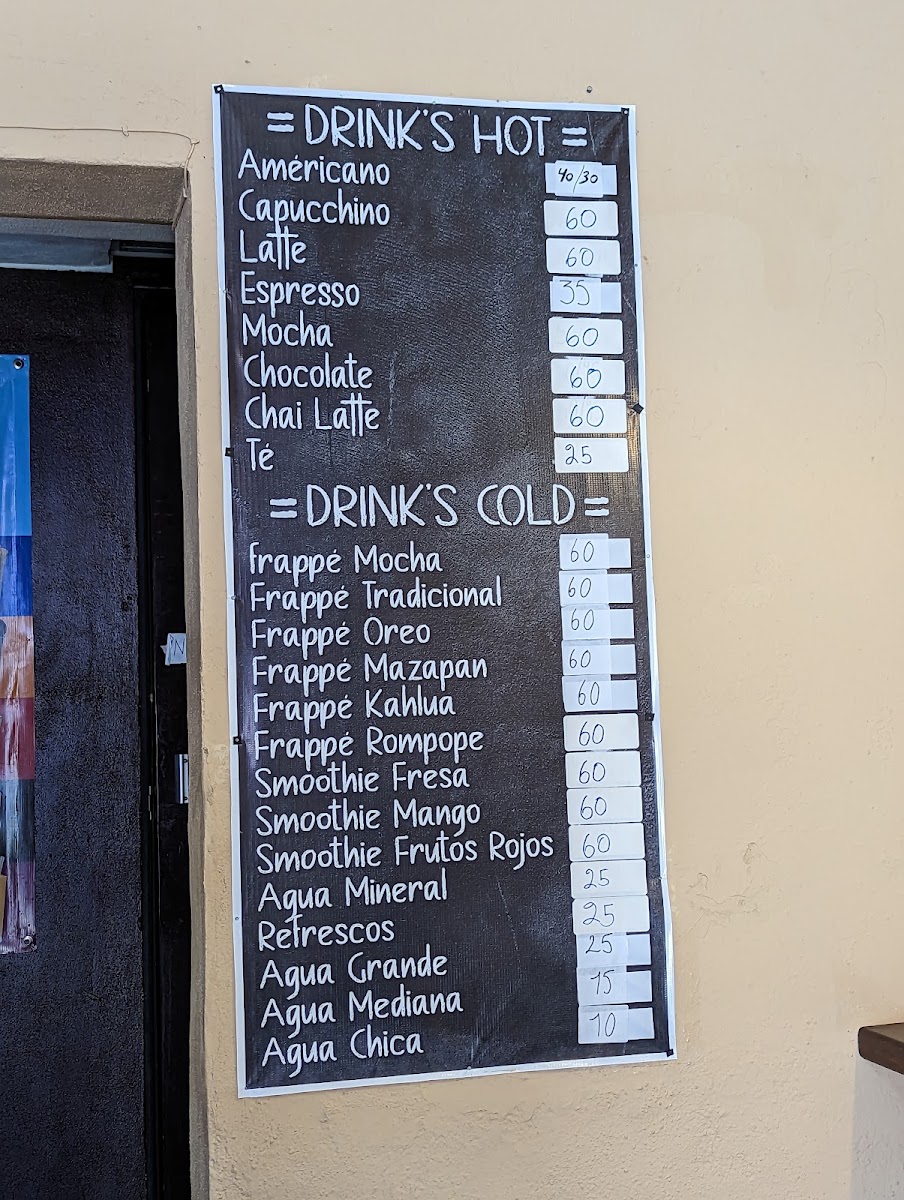 = DRINK'S HOT =
Américano 40/30
Capucchino 60
Latte 60
Espresso 35
Mocha 60
Chocolate 60
Chai Latte 60
Té 25
= DRINK'S COLD =
frappé Mocha 60
Frappé Tradicional 60
Frappé Oreo 60
Frappé Mazapan 60
Frappé Kahlua 60
Frappé Rompope 60
Smoothie Fresa 60
Smoothie Mango 60
Smoothie Frutos Rojos 60
Agua Mineral 25
Refrescos 25
Agua Grande 25
Agua Mediana 15
Agua Chica 10